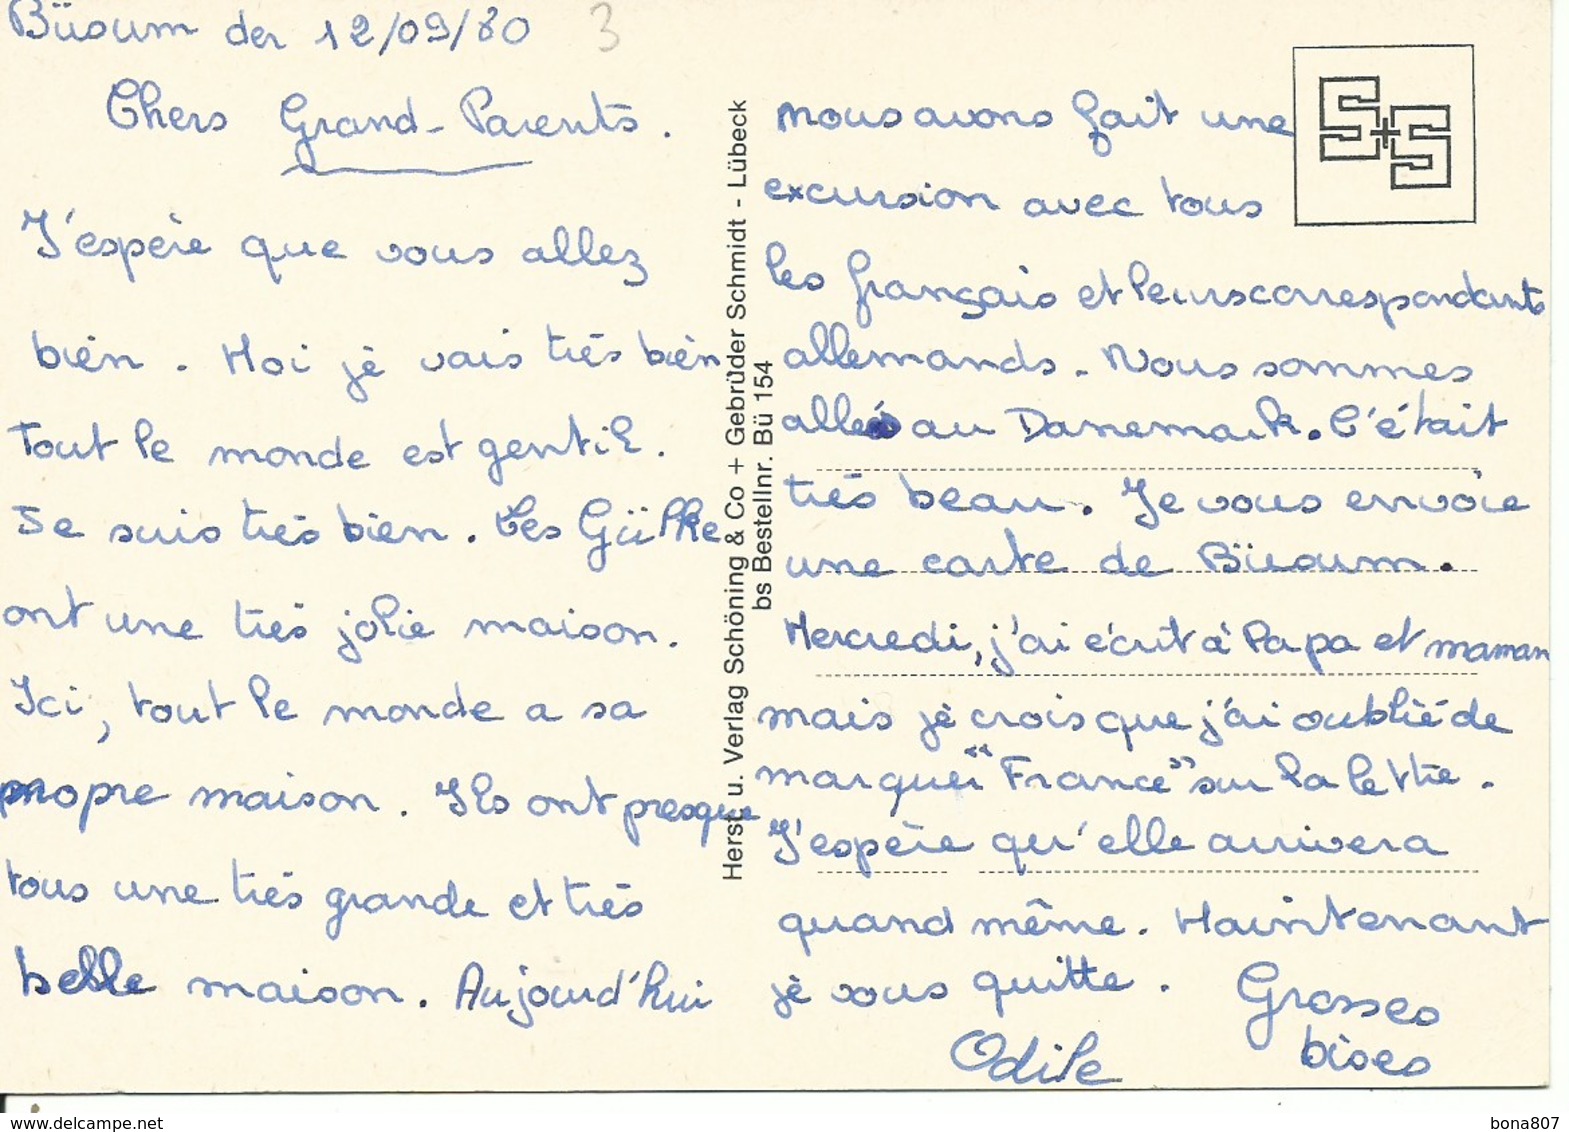 Büsum der 12/09/80 3
Chers Grand-Parents.
J'espère que vous allez
bien. Moi je vais très bien
Tout le monde est gentil.
Je suis très bien. Les Gülke
ont une très jolie maison.
Ici, tout le monde a sa
propre maison. Ils ont presque
tous une très grande et très
belle maison. Aujourd'hui
Herst. u. Verlag Schöning & Co + Gebrüder Schmidt - Lübeck
bs Bestellnr. Bü 154
S+S
nous avons fait une
excursion avec tous
les français et leurs correspondants
allemands. Nous sommes
allés au Danemark. C'était
très beau. Je vous envoie
une carte de Büsum.
Mercredi, j'ai écrit à Papa et maman
mais je crois que j'ai oublié de
marquer "France" sur la lettre.
J'espère qu'elle arrivera
quand même. Maintenant
je vous quitte. Grosses
bises
Odile
www.delcampe.net
bona807